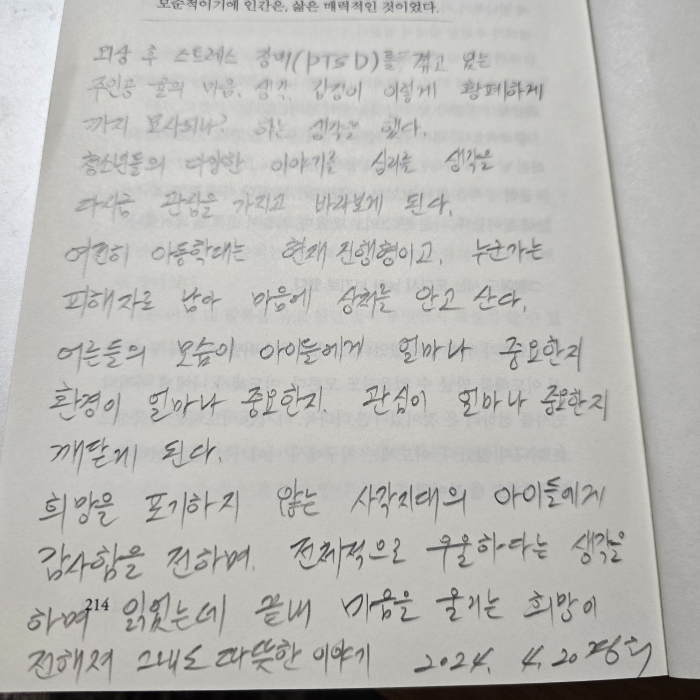 모순적이기에 인간은, 삶은 매력적인 것이었다.
외상 후 스트레스 장애(PTSD)를 겪고 있는
주인공 율의 마음, 생각, 감정이 이렇게 황폐하게
까지 묘사되나? 하는 생각을 했다.
청소년들의 다양한 이야기를 심리를 생각을
다시금 관심을 가지고 바라보게 된다.
여전히 아동학대는 현재 진행형이고, 누군가는
피해자로 남아 마음에 상처를 안고 산다.
어른들의 모습이 아이들에게 얼마나 중요한지
환경이 얼마나 중요한지. 관심이 얼마나 중요한지
깨닫게 된다.
희망을 포기하지 않는 사각지대의 아이들에게
감사함을 전하며. 전체적으로 우울하다는 생각을
하며 읽었는데 끝내 마음을 울리는 희망이
214
전해져 그래도 따뜻한 이야기 2024. 4. 20